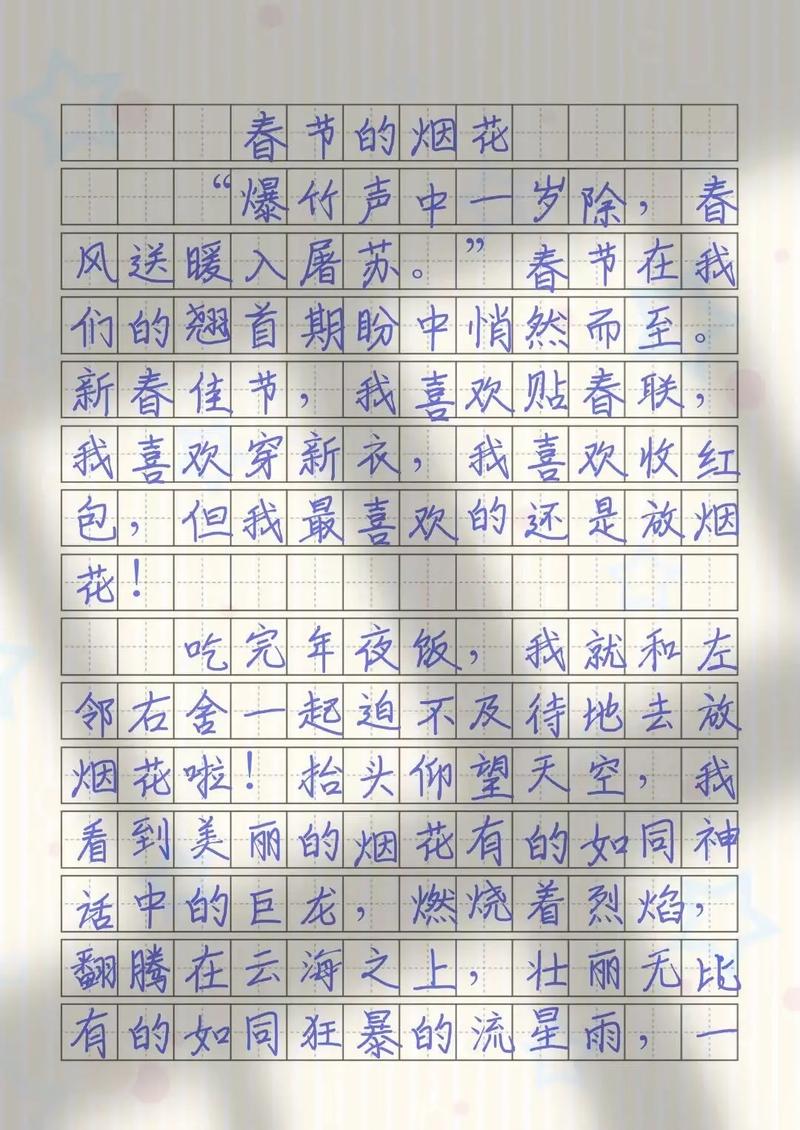 春节的烟花
“爆竹声中一岁除，春
风送暖入屠苏。”春节在我
们的翘首期盼中悄然而至。
新春佳节，我喜欢贴春联，
我喜欢穿新衣，我喜欢收红
包，但我最喜欢的还是放烟
花！
吃完年夜饭，我就和左
邻右舍一起迫不及待地去放
烟花啦！抬头仰望天空，我
看到美丽的烟花有的如同神
话中的巨龙，燃烧着烈焰，
翻腾在云海之上，壮丽无比
有的如同狂暴的流星雨，一